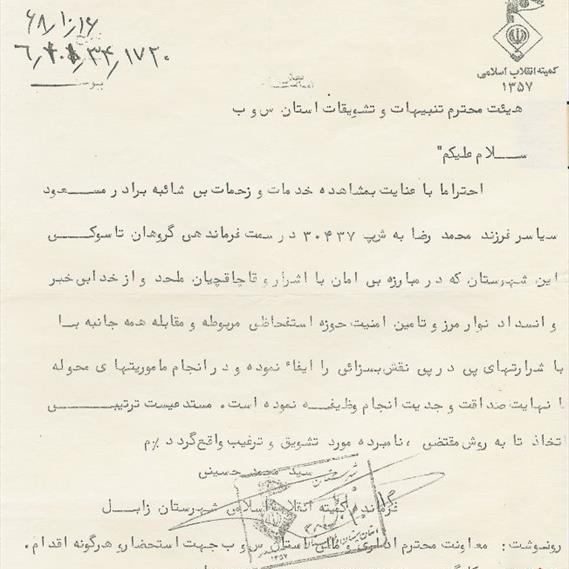 ۶۸/۱۰/۱۶
۱۷۲۰/۳۴/
پیوست
کمیته انقلاب اسلامی
۱۳۵۷
هیئت محترم تنبیهات و تشویقات استان س و ب
سلام علیکم"
احتراما با عنایت بمشاهده خدمات و زحمات بی شائبه برادر مسعود
سیاسر فرزند محمد رضا به شرپ ۳۰۴۳۷ در سمت فرماندهی گروهان تاسوکی
این شهرستان که در مبارزه بی امان با اشرار و قاچاقچیان ملحد و از خدا بی خبر
و انسداد نوار مرز و تامین امنیت حوزه استفحاظی مربوطه و مقابله همه جانبه با
با شرارتهای پی در پی نقش بسزائی را ایفاء نموده و در انجام ماموریتهای محوله
با نهایت صداقت و جدیت انجام وظیفه نموده است. مستدعیست ترتیبی
اتخاذ تا به روش مقتضی ، نامبرده مورد تشویق و ترغیب واقع گردد ٪م
سید محمد حسینی
فرمانده کمیته انقلاب اسلامی شهرستان زابل
رونوشت: معاونت محترم اداری و مالی استان س و ب جهت استحضار و هرگونه اقدام.